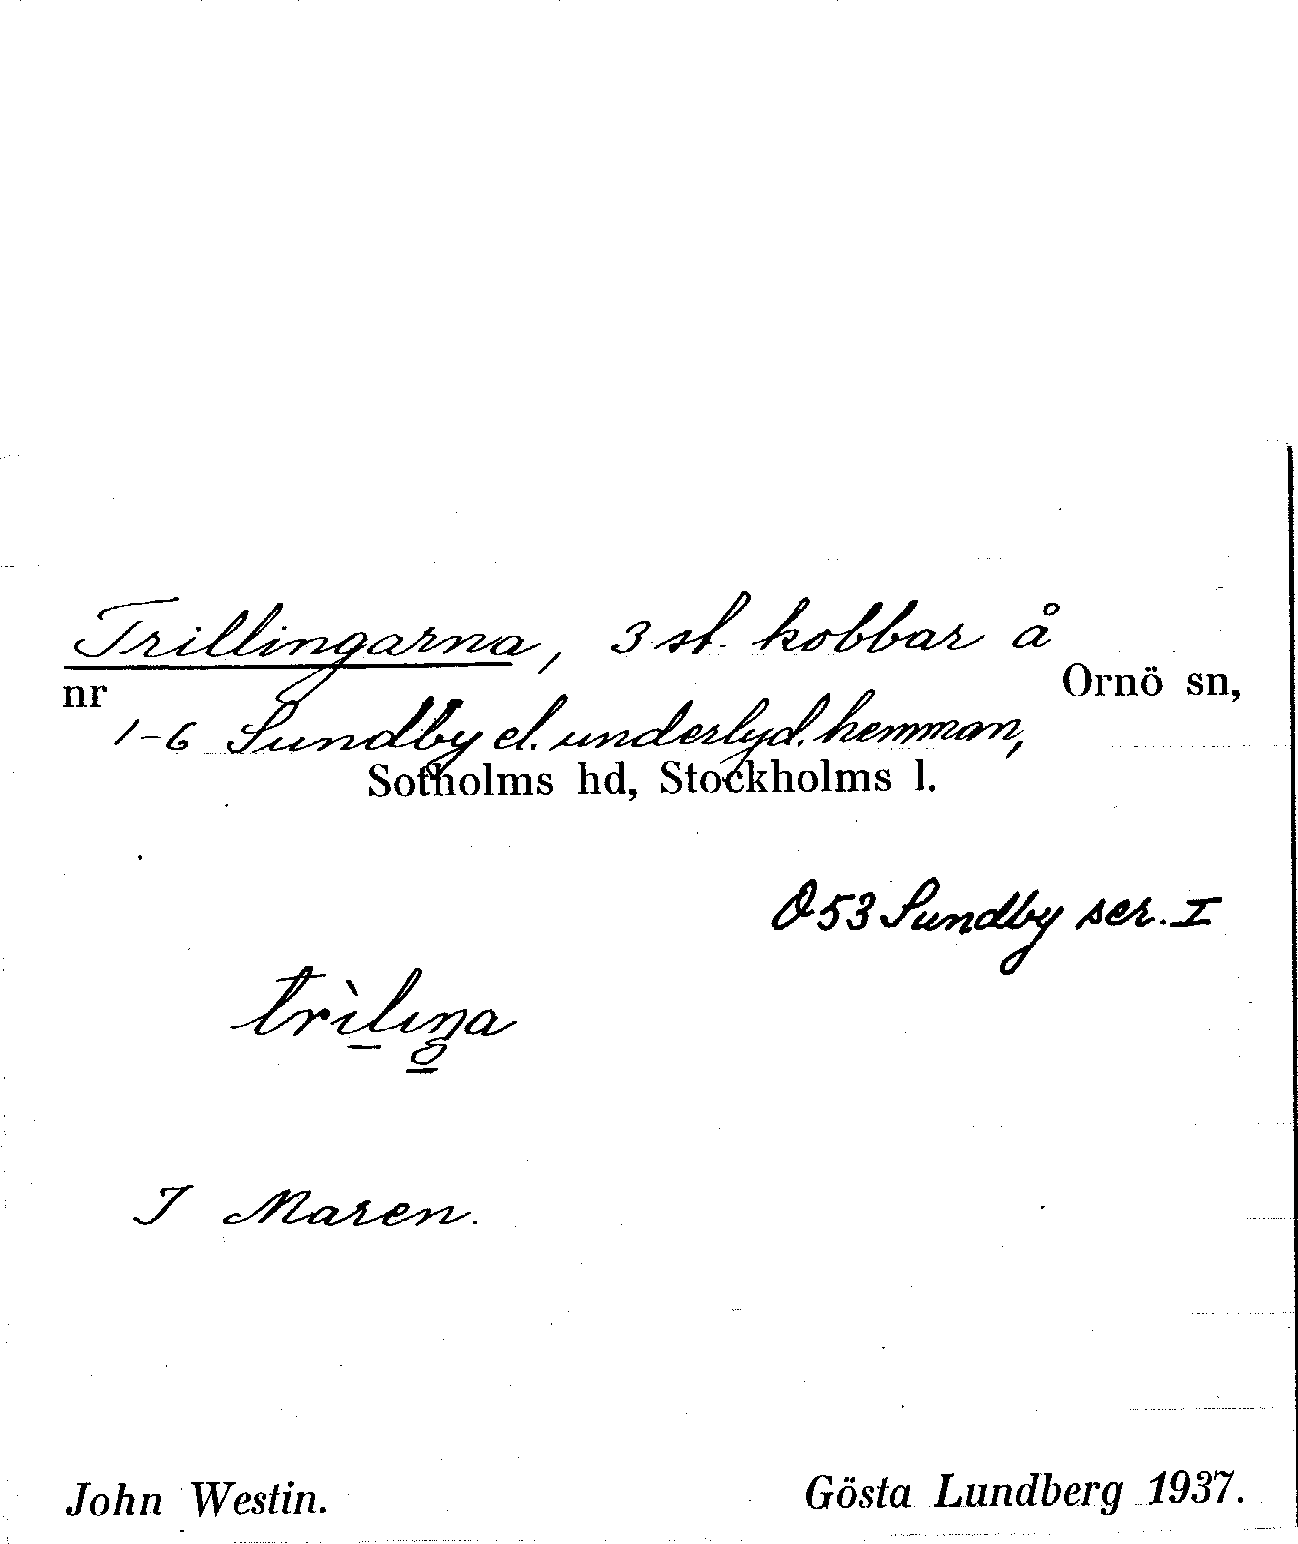 Trillingarna, 3 st. kobbar å
nr Ornö sn,
1-6 Sundby el. underlyd. hemman,
Sotholms hd, Stockholms l.
Ö 53 Sundby ser. I
I Maren.
John Westin. Gösta Lundberg 1937.